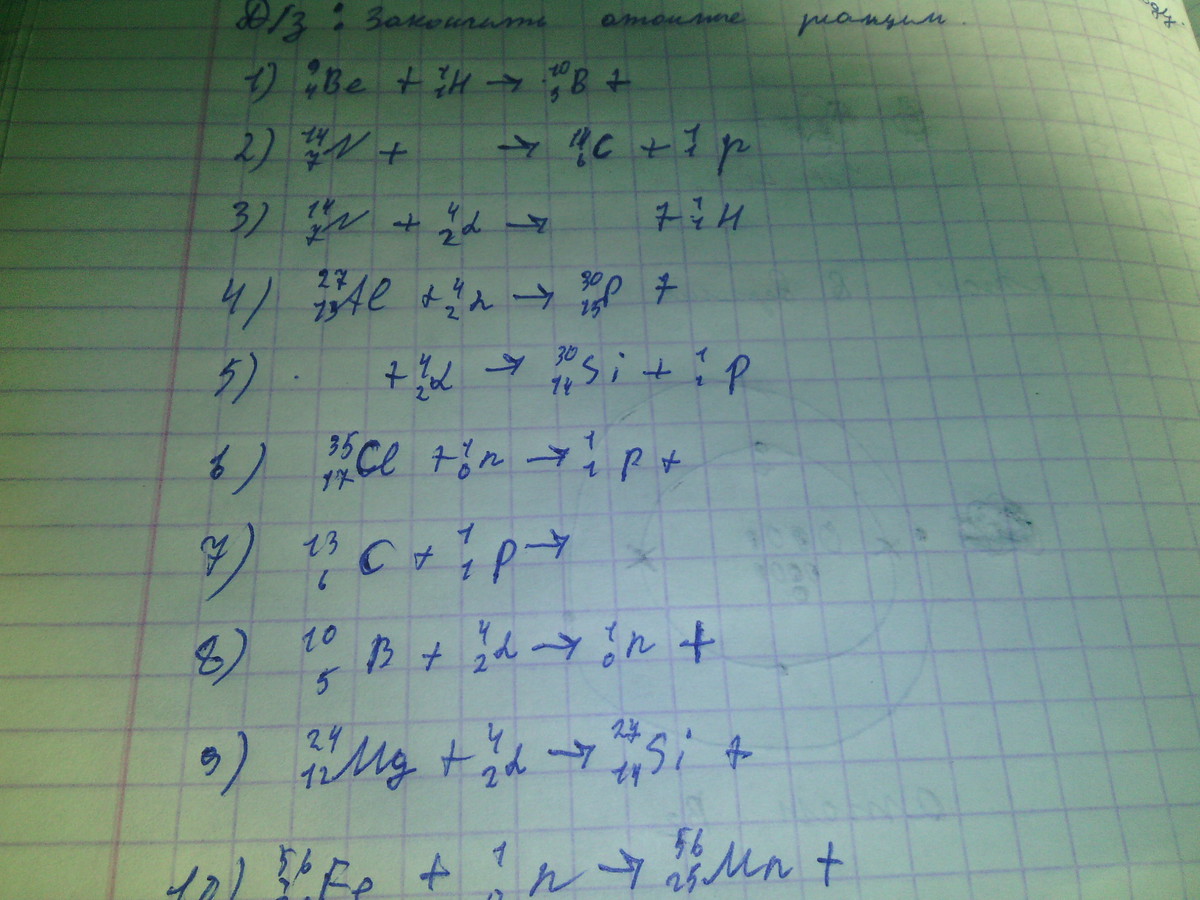 Д/з: Закончить атомные реакции.
1) ⁹₄Be + ¹₁H → ¹⁰₅B +
2) ¹⁴₇N + → ¹⁴₆C + ¹₁p
3) ¹⁴₇N + ⁴₂α → + ¹₁H
4) ²⁷₁₃Al + ⁴₂α → ³⁰₁₅P +
5) + ⁴₂α → ³⁰₁₄Si + ¹₁p
6) ³⁵₁₇Cl + ¹₀n → ¹₁p +
7) ¹³₆C + ¹₁p →
8) ¹⁰₅B + ⁴₂α → ¹₀n +
9) ²⁴₁₂Mg + ⁴₂α → ²⁷₁₄Si +
10) ⁵⁶Fe + ¹₀n → ⁵⁶₂₅Mn +